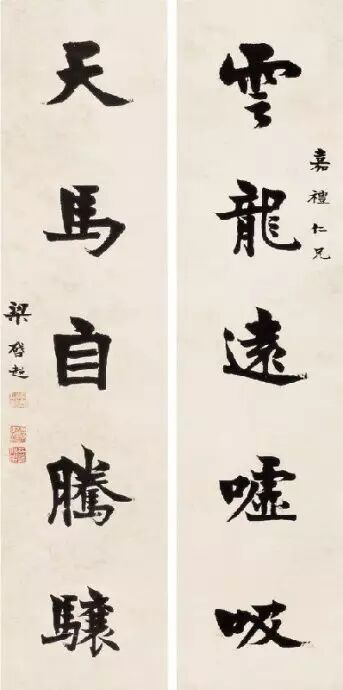 雲龍遠嘘吸
嘉禮仁兄
天馬自騰驤
梁啓超